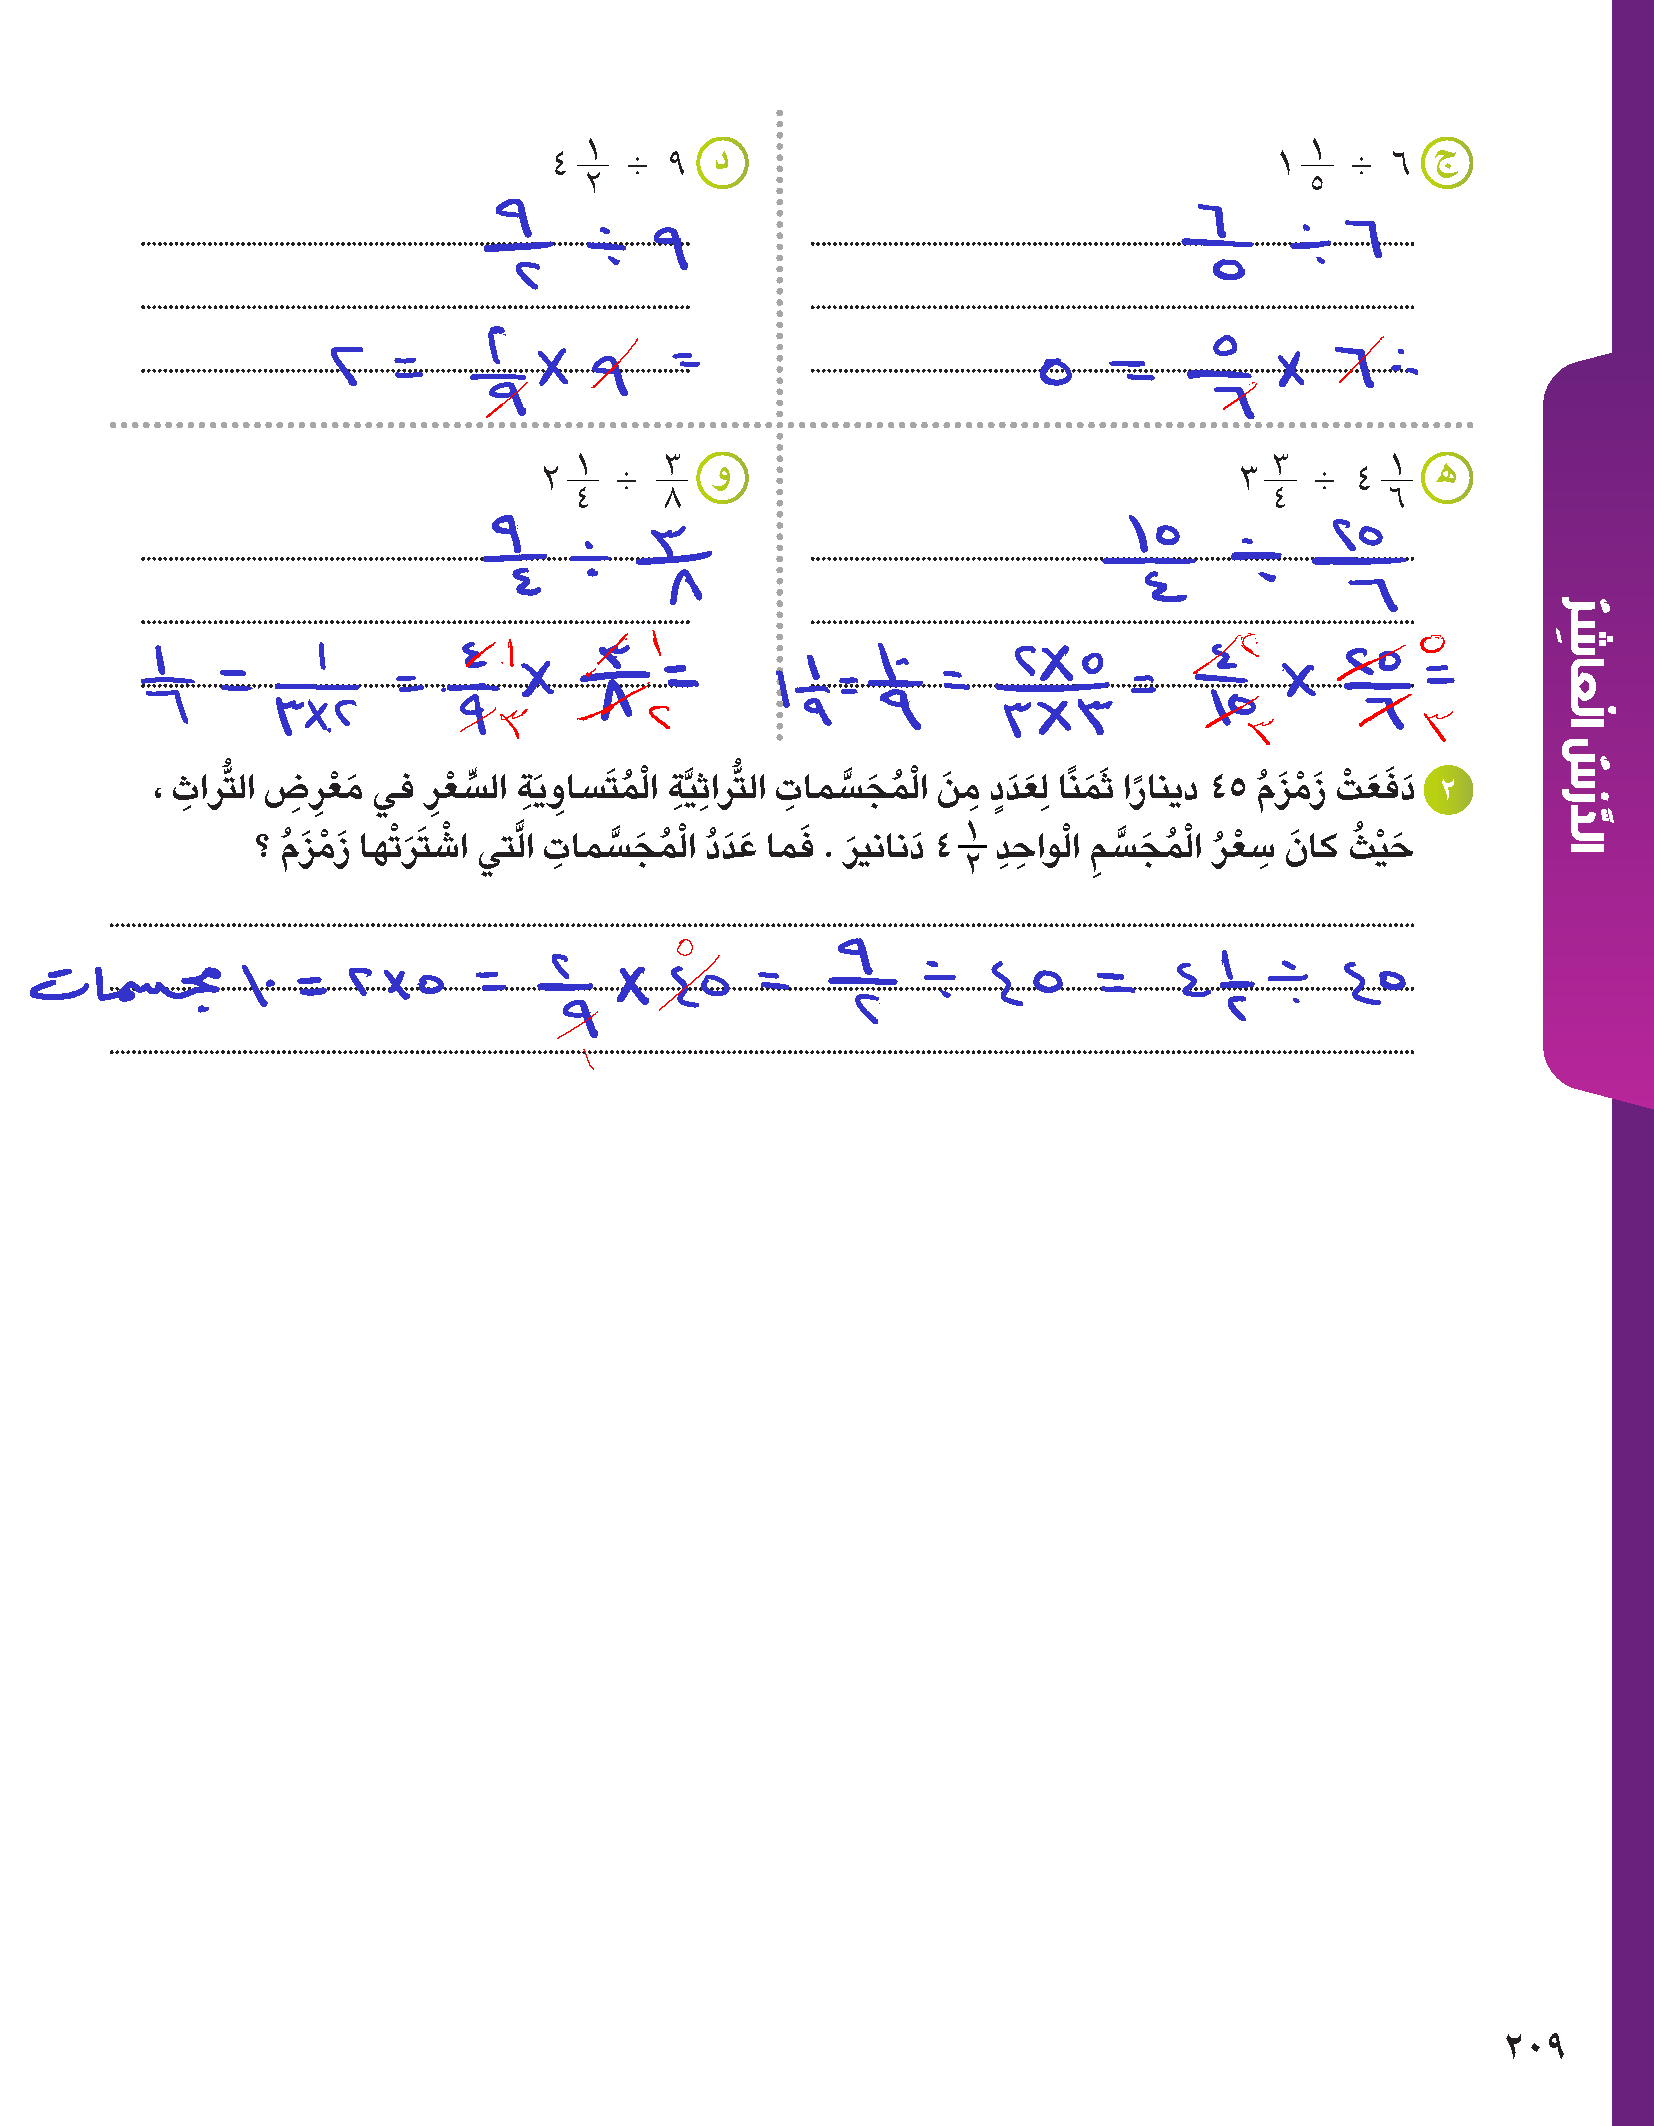 ج ٦ ÷ ١ ١/٥
٦ ÷ ٦/٥
= ٦ × ٥/٦ = ٥
د ٩ ÷ ٤ ١/٢
٩ ÷ ٩/٢
= ٩ × ٢/٩ = ٢
ه ٤ ١/٦ ÷ ٣ ٣/٤
٢٥/٦ ÷ ١٥/٤
= ٢٥/٦ × ٤/١٥ = ٥×٢/٣×٣ = ١٠/٩ = ١ ١/٩
٥ ٣ ٢ ٣
و ٣/٨ ÷ ٢ ١/٤
٣/٨ ÷ ٩/٤
= ٣/٨ × ٤/٩ = ١/٢×٣ = ١/٦
١ ٢ ١ ٣
٢ دَفَعَتْ زَمْزَمُ ٤٥ دينارًا ثَمَنًا لِعَدَدٍ مِنَ الْمُجَسَّماتِ التُّراثِيَّةِ الْمُتَساوِيَةِ السِّعْرِ في مَعْرِضِ التُّراثِ ،
حَيْثُ كانَ سِعْرُ الْمُجَسَّمِ الْواحِدِ ٤ ١/٢ دَنانيرَ . فَما عَدَدُ الْمُجَسَّماتِ الَّتي اشْتَرَتْها زَمْزَمُ ؟
٤٥ ÷ ٤ ١/٢ = ٤٥ ÷ ٩/٢ = ٤٥ × ٢/٩ = ٥×٢ = ١٠ مجسمات
٥ ١
الدَّرْسُ الْعاشِرُ
٢٠٩